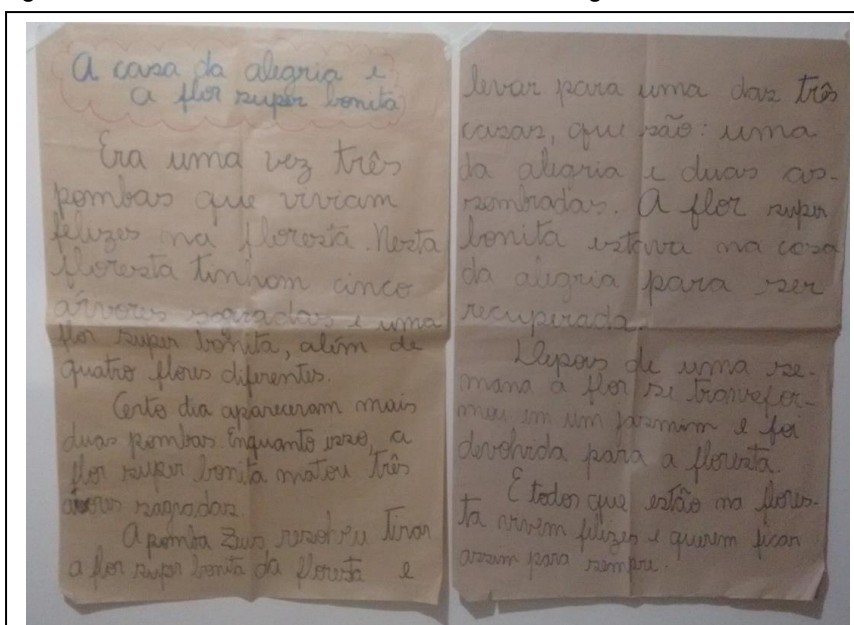 A casa da alegria e
a flor super bonita
Era uma vez três
pombas que viviam
felizes na floresta. Nesta
floresta tinham cinco
árvores sagradas e uma
flor super bonita, além de
quatro flores diferentes.
Certo dia apareceram mais
duas pombas. Enquanto isso, a
flor super bonita matou três
árvores sagradas.
A pomba Zeus resolveu tirar
a flor super bonita da floresta e
levar para uma das três
casas, que são: uma
da alegria e duas as-
sombradas. A flor super
bonita estava na casa
da alegria para ser
recuperada.
Depois de uma se-
mana a flor se transfor-
mou em um jasmim e foi
devolvida para a floresta.
E todos que estão na flores-
ta vivem felizes e querem ficar
assim para sempre.